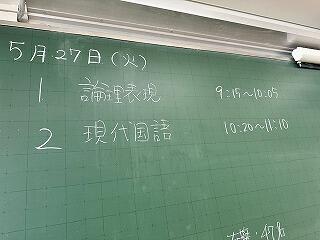 5月27日(火)
1 論理表現 9:15~10:05
2 現代国語 10:20~11:10